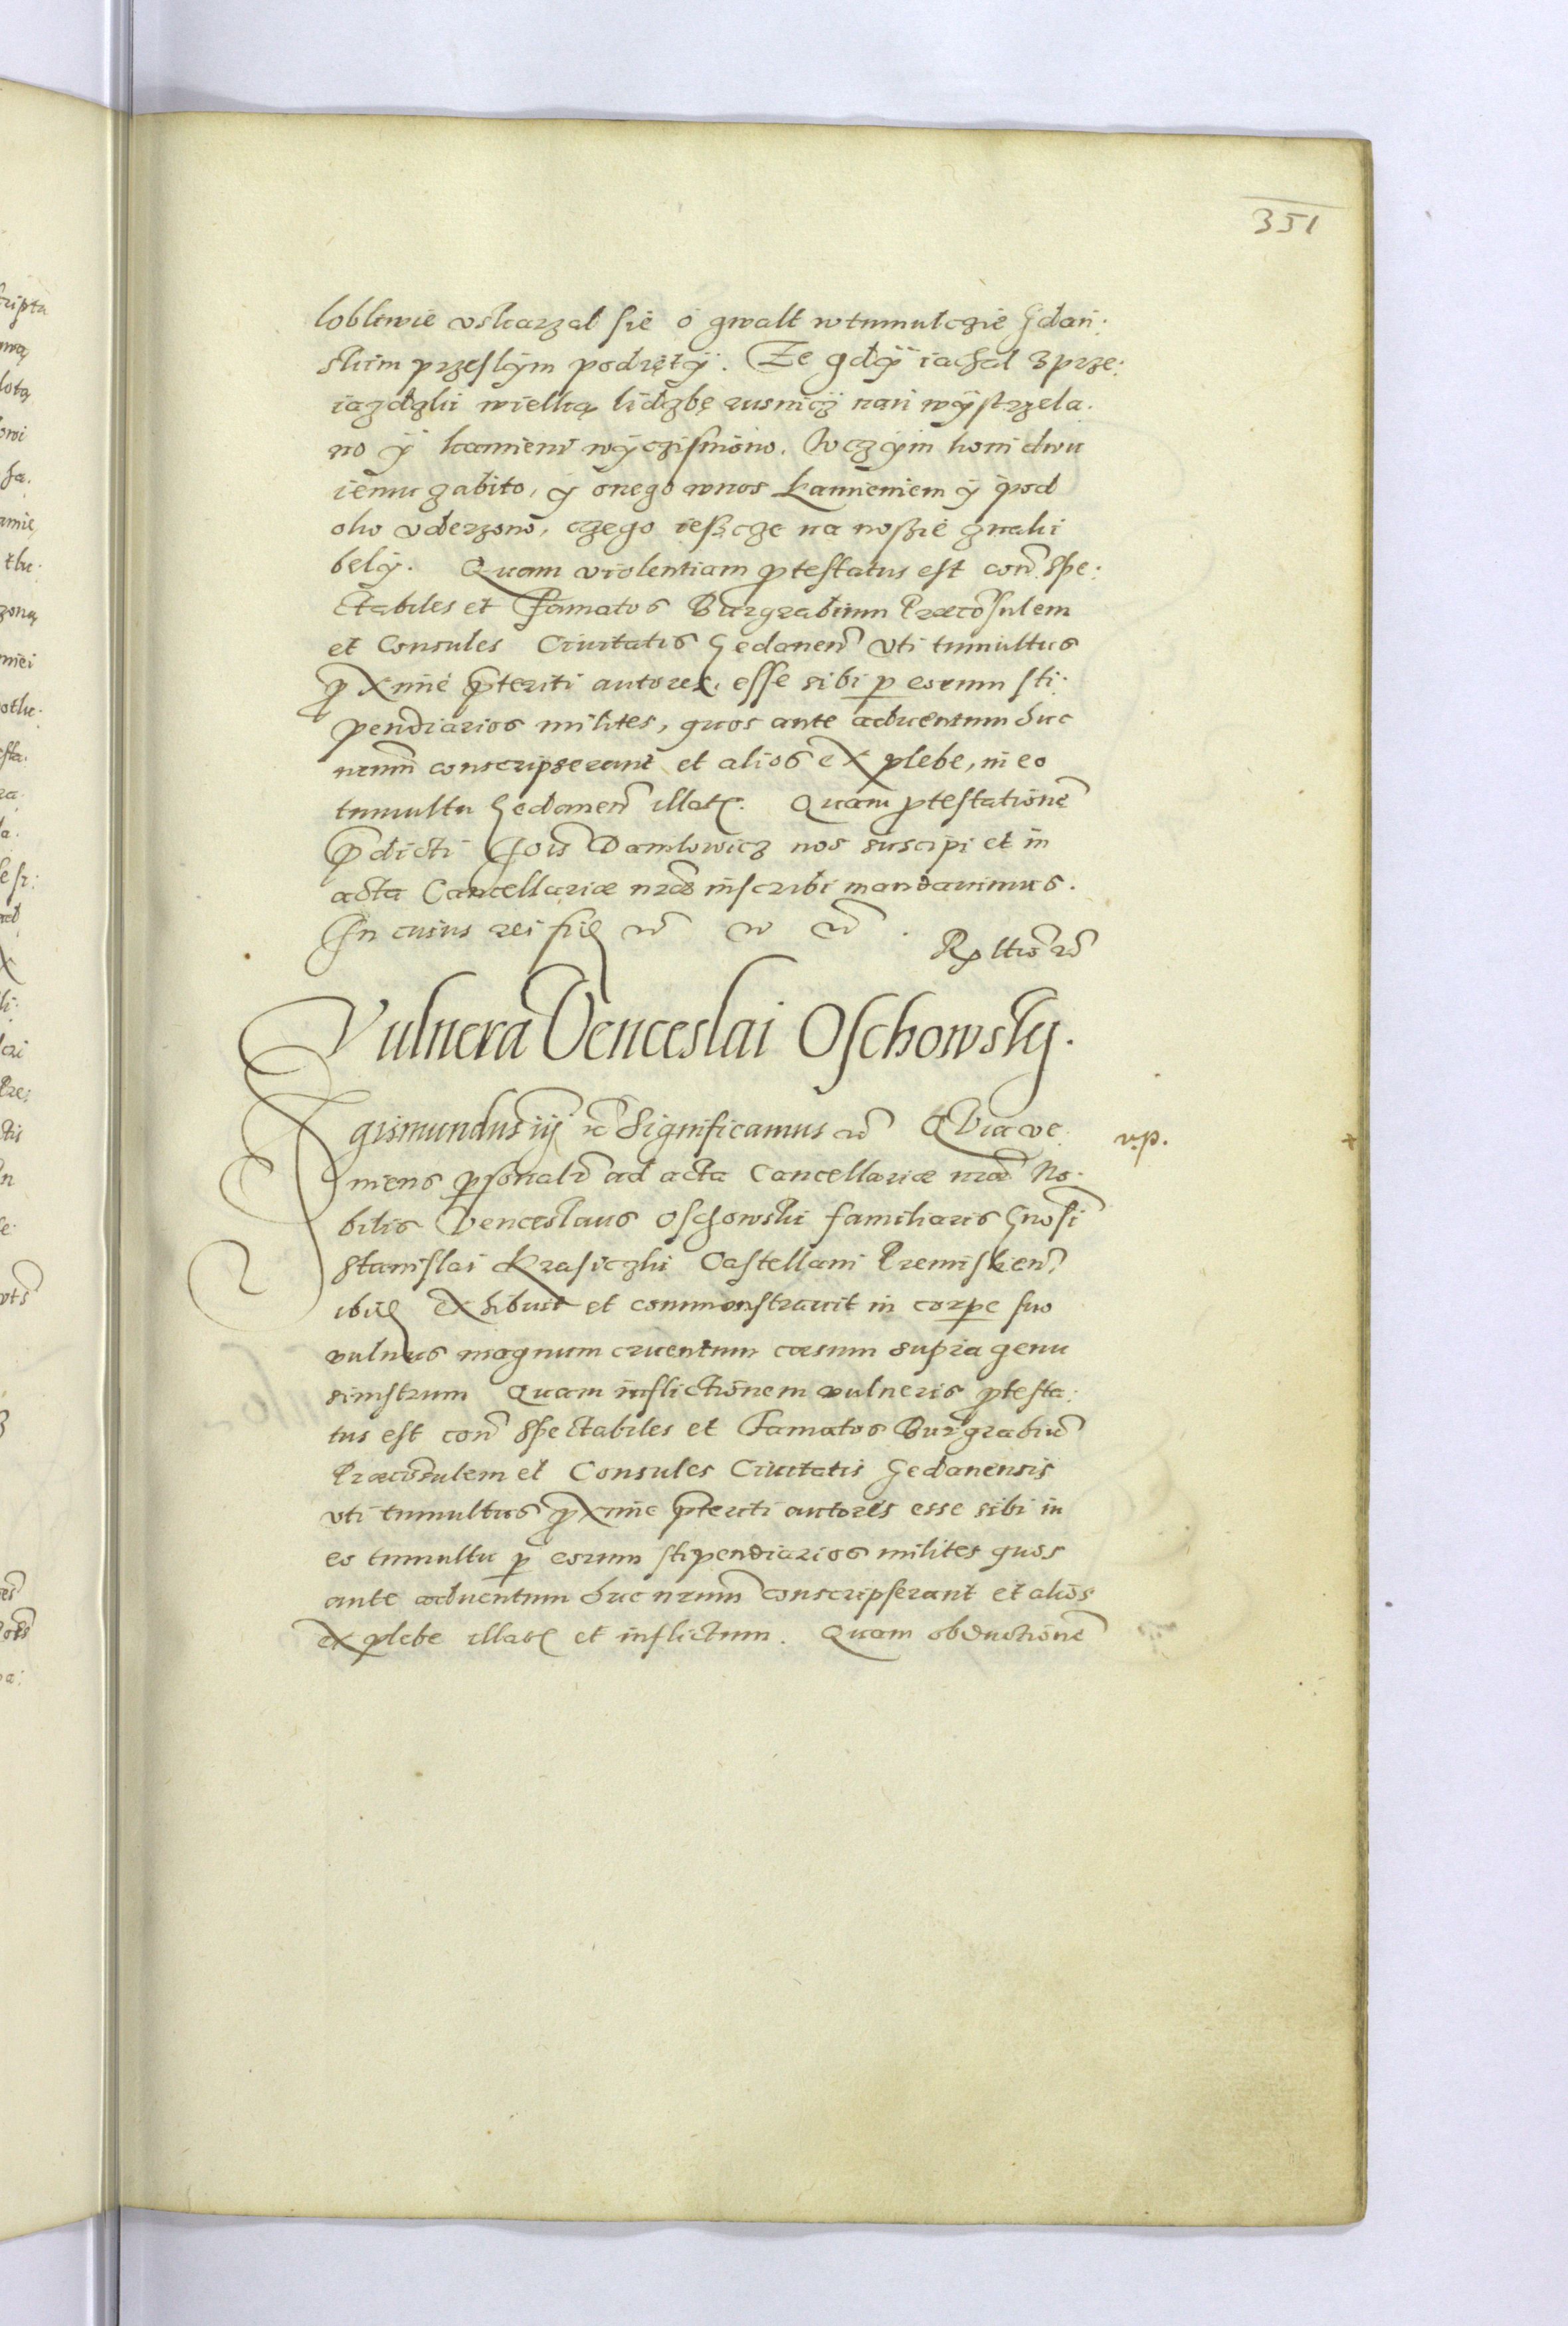 351
lobliwie vskarzal sie o gwalt w tumulczie Gdań:
skim przeslym podięty. Ze gdy iachal z prze:
iazdzki wielką lidzbę rusnicz nań wystrzela.
no y kamieni wyczisniono. W czym koni dwu
iemu zabito, y onego w nos kamieniem y pod
oko vderzono, czego iescze na nosie znaki
bely. Quam violentiam ptestatus est con Spe:
ctabiles et Famatos Burgrabium Præcosulem
et Consules Ciuitatis Gedanen vti tumultus
pxime pteriti autores, esse sibi p eorum sti:
pendiarios milites, quos ante aduentum huc
nrum conscripserant et alios ex plebe, in eo
tumultu Gedanen illat. Quam ptestatione
pdicti Jois Danilowicz nos suscipi et in
acta Cancellariæ nræ inscribi mandauimus.
In cuius rei fid
Vulnera Venceslai Oschowsky.
Sigismundus iij rc Significamus rc Quia ve:
v.p.
niens psonalr ad acta Cancellariæ nræ No:
bilis Venceslaus Oschowski familiaris Gnosi
Stanislai Krasiczki Castellani Premislien.
ibid exhibuit et commonstrauit in corpe suo
vulnus magnum cruentum cæsum supra genu
sinistrum Quam inflictionem vulneris ptesta:
tus est con Spectabiles et Famatos Burgrabiu
Præcosulem et Consules Ciuitatis Gedanensis
vti tumultus pxime pteriti autores esse sibi in
eo tumultu p eorum stipendiarios milites quos
ante aduentum huc nrum conscripserant et alios
ex plebe illat et inflictum. Quam obductione